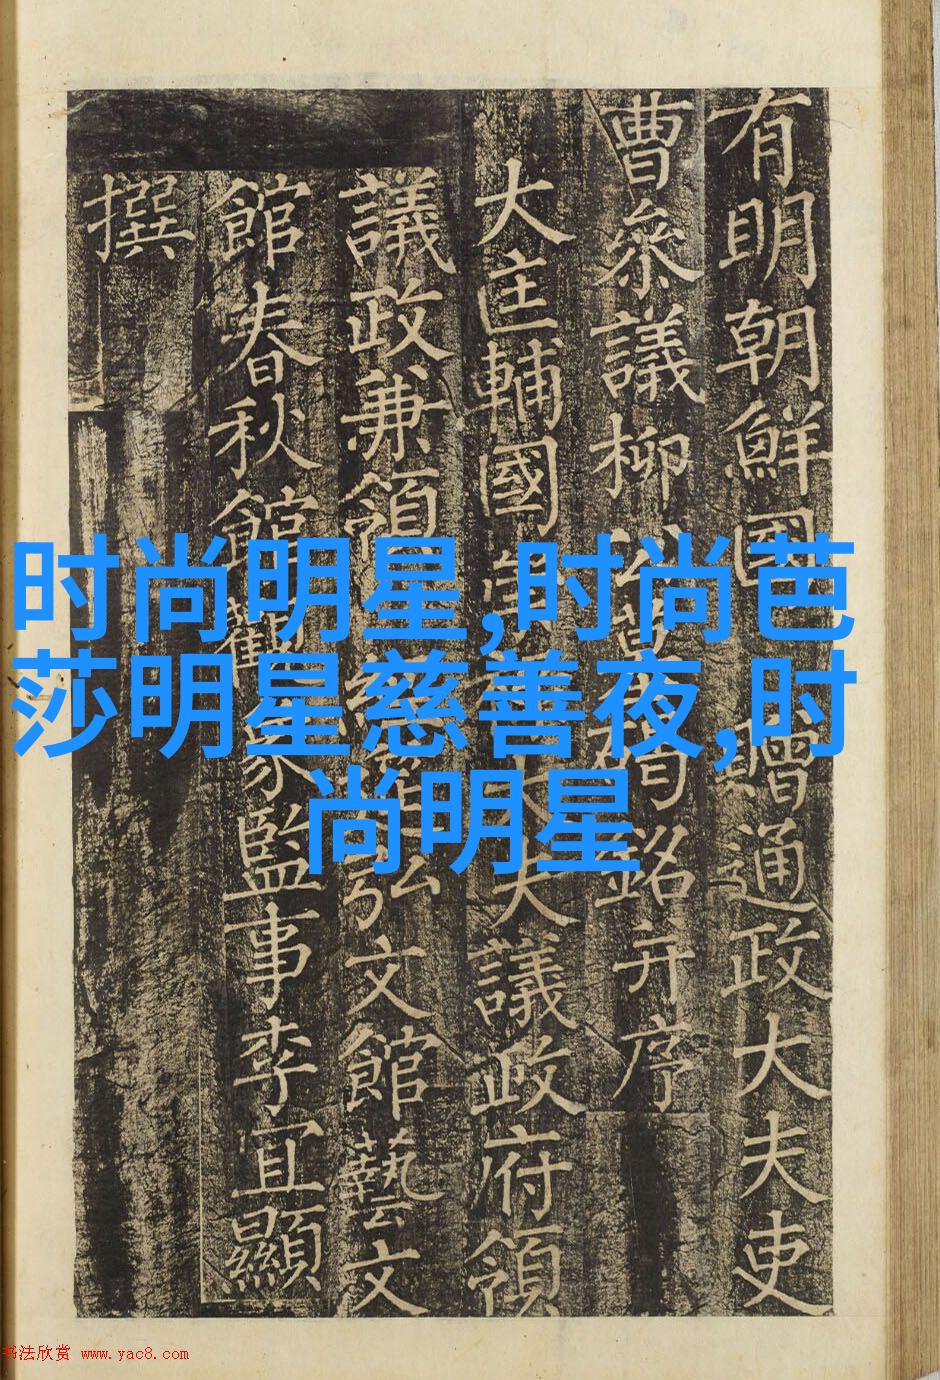 有明朝鮮國 贈通政大夫吏
曹參議柳公銘并序
大匡輔國大夫議政府領
議政兼領經筵弘文館藝文
館春秋館觀象監事李宜顯
撰
时尚明星,时尚芭
莎明星慈善夜,时
尚明星
书法欣赏 www.yac8.com